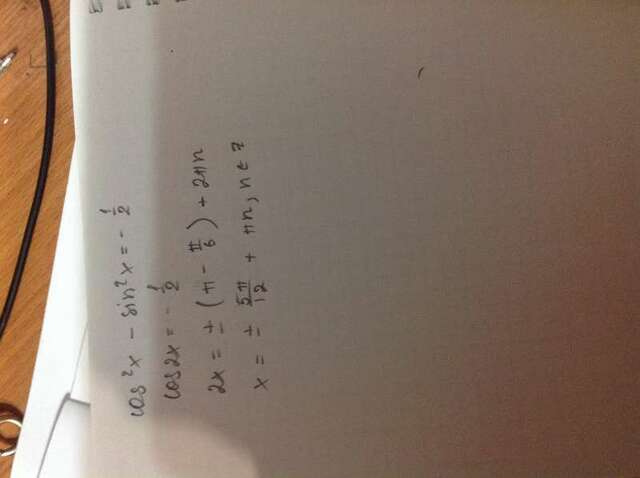 cos²x - sin²x = - 1/2
cos2x = - 1/2
2x = ± (π - π/6) + 2πn
x = ± 5π/12 + πn, n ∈ z